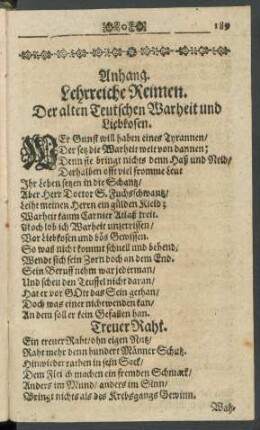 189
Anhang.
Lehrreiche Reimen.
Der alten Teutschen Warheit und
Liebkosen.
WEr Gunst will haben eines Tyrannen/
Der setz die Warheit weit von dannen;
Denn sie bringt nichts denn Haß und Neid/
Derhalben offt viel fromme Leut
Ihr Leben setzen in die Schantz/
Aber Herr Doctor S. Fuchsschwantz/
Leiht meinen Herrn ein gülden Kleid;
Warheit kaum Carnier Atlaß treit.
Noch lob ich Warheit unzerrissen/
Vor Liebkosen und bös Gewissen.
So was nicht kommt schnell und behend/
Wendt sich sein Zorn doch an dem End.
Sein Beruff nehm war jederman/
Und scheu den Teuffel nicht daran/
Hat er vor GOtt das Sein gethan/
Doch was einer nicht wenden kan/
An dem soll er kein Gefallen han.
Treuer Raht.
Ein treuer Raht/ ohn eigen Nutz/
Raht mehr denn hundert Männer Schutz.
Hinwieder rathen in sein Sack/
Dem machen ein fremden Schmack/
Anders im Mund/ anders im Sinn/
Bringt nichts als des Krebsgangs Gewinn.
Wah-